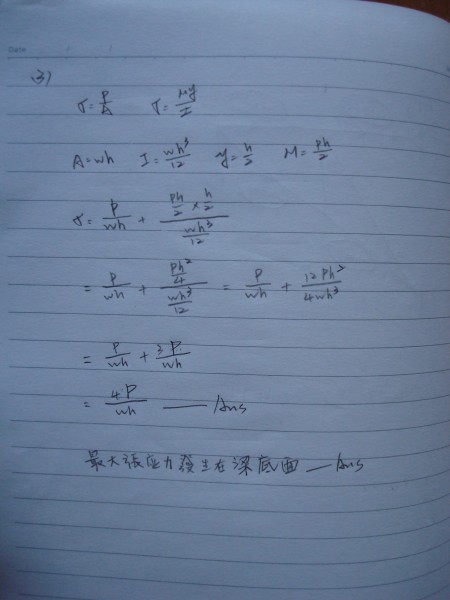 Date
(3)
σ = P/A σ = My/I
A = wh I = wh³/12 y = h/2 M = Ph/2
σ = P/wh + (Ph/2 × h/2)/(wh³/12)
= P/wh + (Ph²/4)/(wh³/12) = P/wh + 12Ph²/4wh³
= P/wh + 3P/wh
= 4P/wh — Ans
最大張应力發生在深底面 — Ans